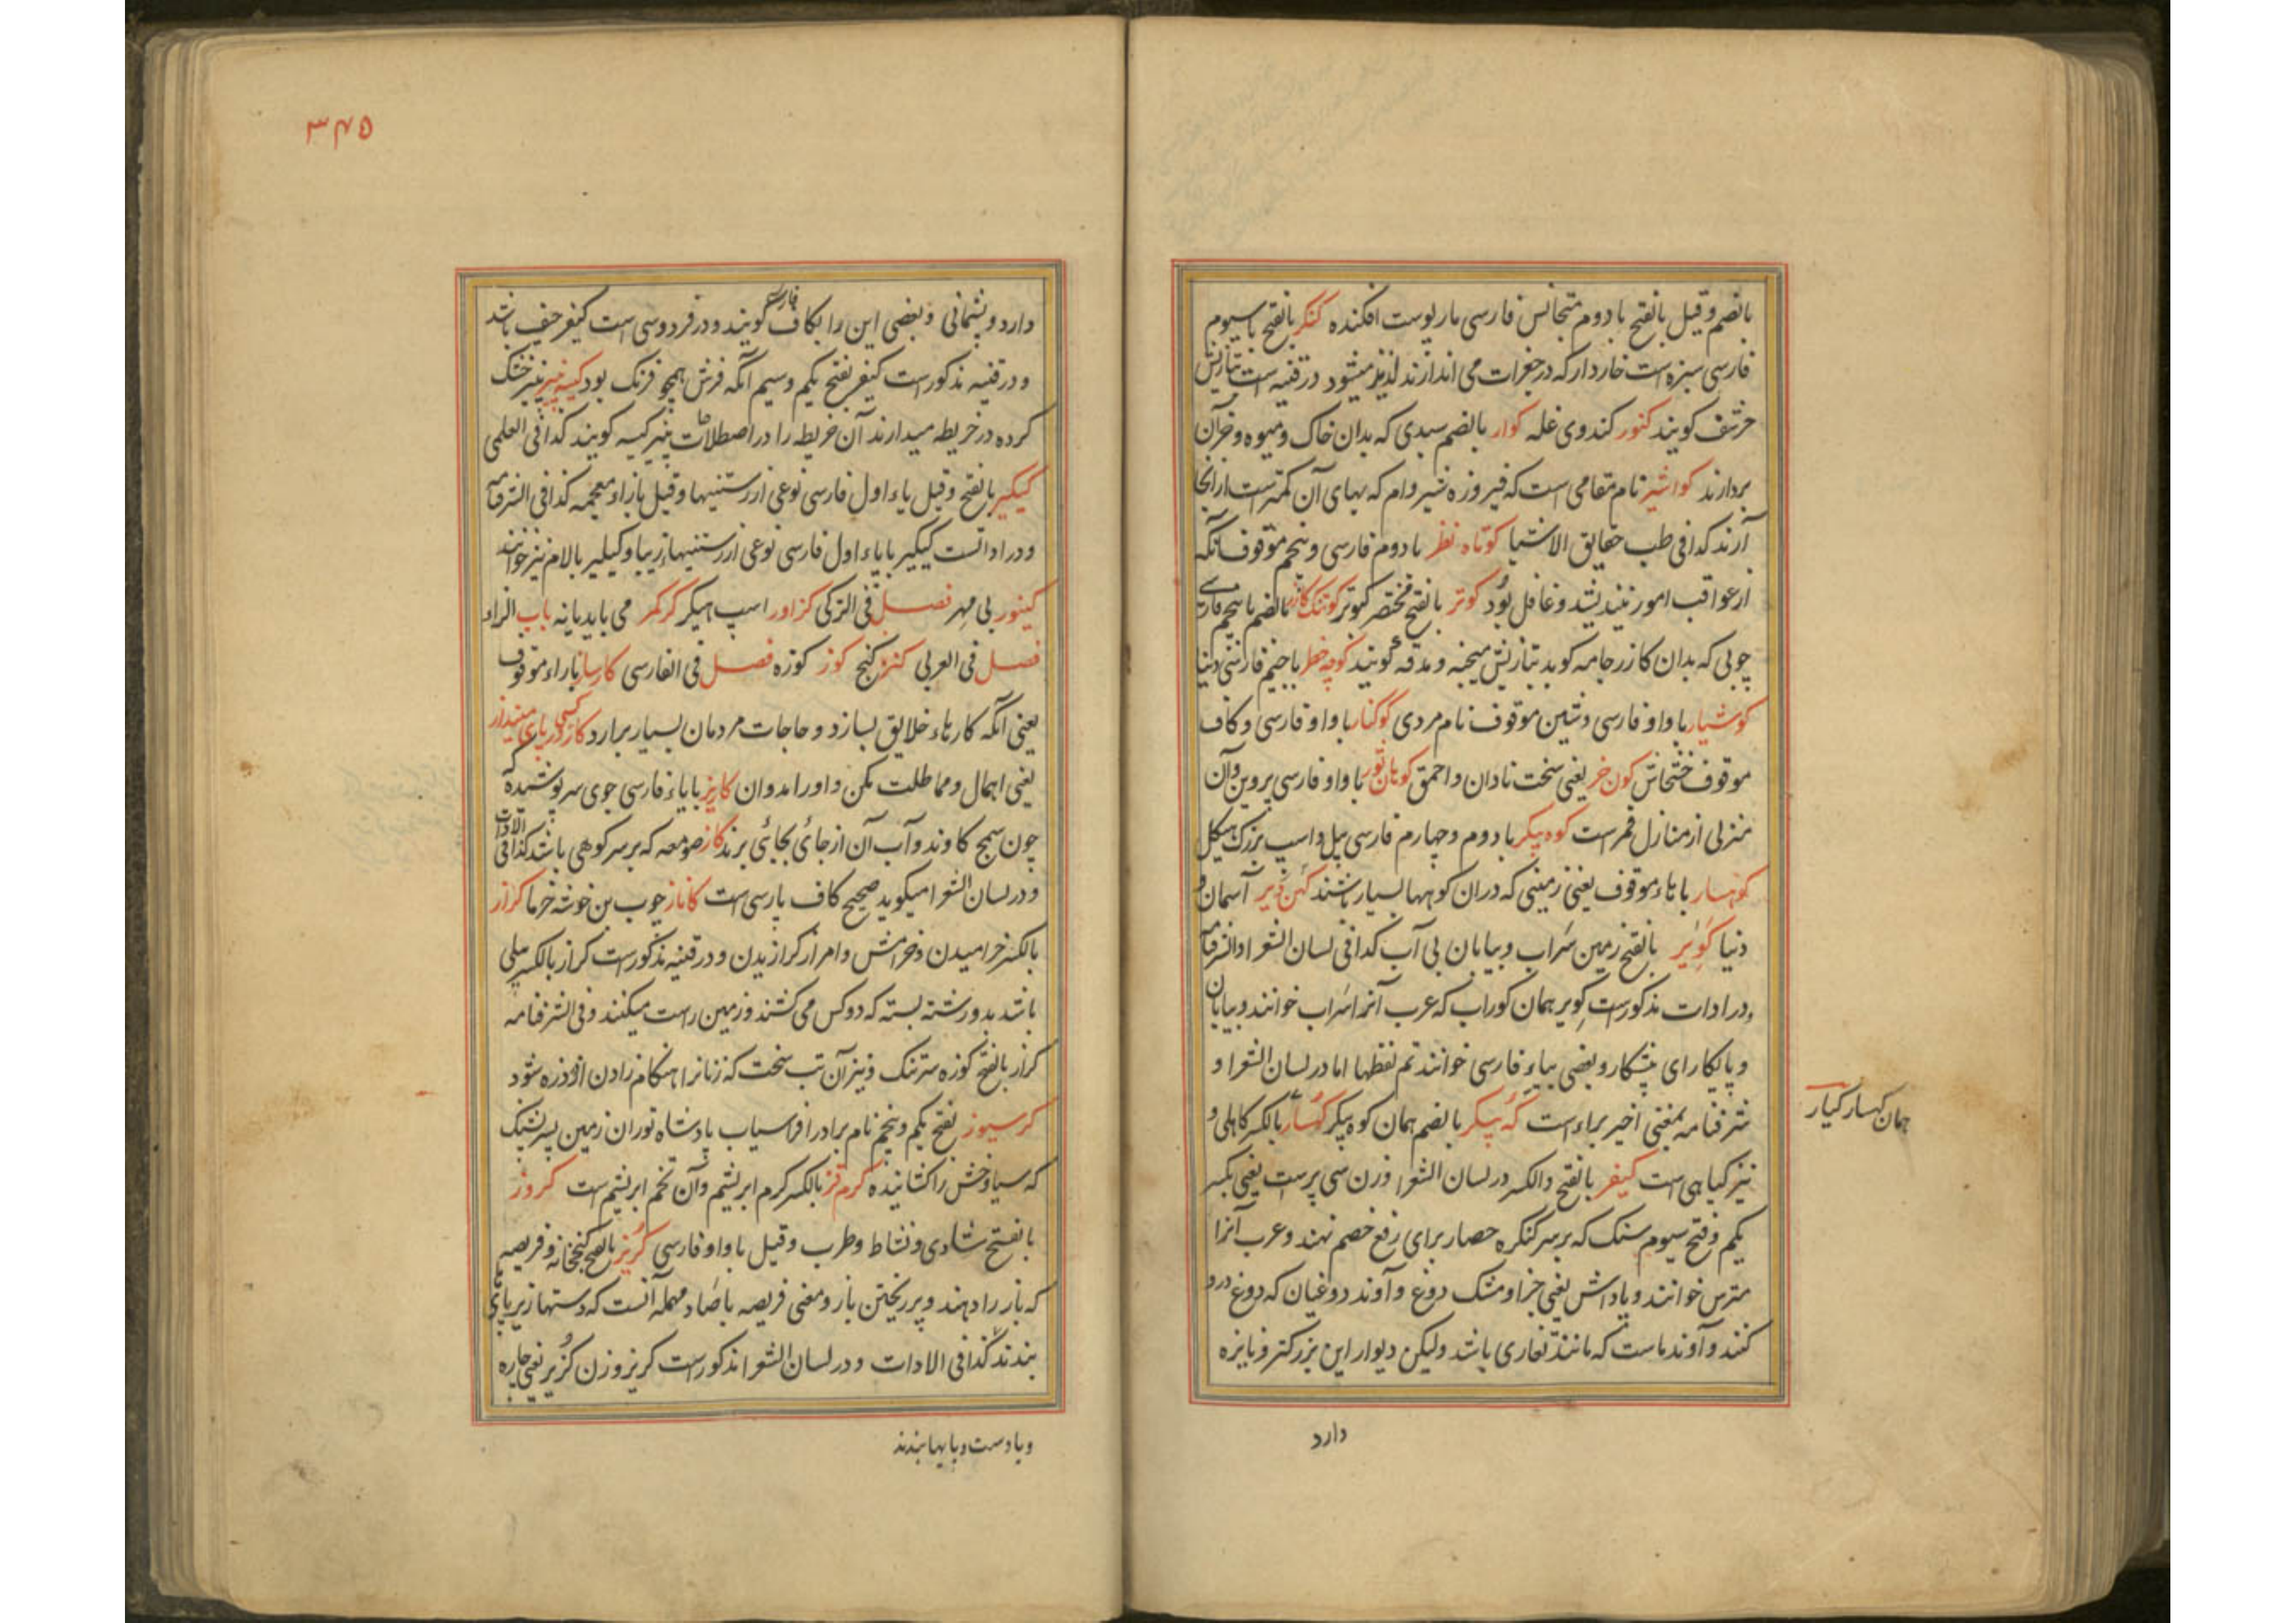 بالضم وقیل بالفتح با دوم متجانس فارسی مار پوست افکنده کنگر بالفتح با سیوم
فارسی سبزه است خاردار که در جغرات می اندازند لذیذ میشود در قنیه است بتازیش
حرشف کویند کنور کندوی غله کوار بالضم سبدی که بدان خاک و میوه و جز آن
بردارند کواشیر نام مقامی است که فیروزه شیروام که بهای آن کمتر است از انجا
آرند کذا فی طب حقایق الاشیا کوتاه نظر با دوم فارسی و پنجم موقوف آنکه
از عواقب امور نیندیشد و غافل بود کوتر بالفتح مختصر کبوتر کوتنک کازر بالضم با پنجم فارسی
چوبی که بدان کازر جامه کوبد بتازیش میجنه و مدقه کویند کوچه خطر با جیم فارسی دنیا
کوشیار با واو فارسی و شین موقوف نام مردی کوکنار با واو فارسی و کاف
موقوف خشخاش کون خر یعنی سخت نادان و احمق کوهان ثور با واو فارسی پروین و آن
منزلی از منازل قمر است کوه پیکر با دوم و چهارم فارسی پیل و اسپ بزرک هیکل
کوهسار با هاء موقوف یعنی زمینی که دران کوهها بسیار باشند کهن دیر آسمان و
دنیا کویر بالفتح زمین سراب و بیابان بی آب کذا فی لسان الشعرا والشرفنامه
و در ادات مذکورست کویر همان کوراب که عرب آنرا سراب خوانند و بیابان
و پالیکارای پشکار و بعضی بیاء فارسی خوانند تم لفظها اما در لسان الشعرا و
شرفنامه بمعنی اخیر براء است که پیکر بالضم همان کوه پیکر کهسار بالکسر کاهلی و
نیز کیاهی است کیفر بالفتح والکسر در لسان الشعرا وزن سی پرست یعنی بکسر
یکم و فتح سیوم سنک که بر سر کنکره حصار برای رفع خصم نهند و عرب آنرا
مترس خوانند و پاداش یعنی جزا و مشک دوغ و آوند دوغیان که دوغ درو
کنند و آوند ماست که مانند تغاری باشد ولیکن دیوار این بزرکتر و نایزه
همان کهسار کیار
دارد
۳۴۵
دارد و پشمانی و بعضی این را بکاف فارسی کویند و در فردوسی است کیفر حیف باشد
و در قنیه مذکورست کیفر بفتح یکم و سیم آنکه فرش همچو فرنک بود کیسه پنیر پنیر خشک
کرده در خریطه میدارند آن خریطه را در اصطلاحات پنیر کیسه کویند کذا فی العلمی
کیکیر بالفتح وقیل یاء اول فارسی نوعی از رستنیها وقیل بازاء معجمه کذا فی الشرفنامه
و در ادات است کیکیر با یاء اول فارسی نوعی از رستنیها زیبا و کیلیر بالام نیز خوانند
کینور بی مهر فصل فی الترکی کزاور اسپ هیکر کرکمر می باید یا نه باب الزاء
فصل فی العربی کنز کنج کوز کوزه فصل فی الفارسی کارساز باراء موقوف
یعنی آنکه کارهاء خلایق بسازد و حاجات مردمان بسیار برارد کار کسی در پای مینداز
یعنی اهمال و مماطلت مکن و اورا مدوان کاریز بایاء فارسی جوی سرپوشیده که
چون سمج کاوند و آب آن از جائی بجائی برند کاز صومعه که بر سر کوهی باشد کذا فی الادات
و در لسان الشعرا میکوید صحیح کاف پارسی است کاناز چوب بن خوشه خرما کراز
بالکسر خرامیدن و خرامش و امر از کرازیدن و در قنیه مذکورست کراز بالکسر بیلی
باشد بدو رشته بسته که دو کس می کشند و زمین راست میکنند و فی الشرفنامه
کراز بالفتح کوزه سرتنک و نیز آن تب سخت که زنانرا هنکام زادن از درد شود
کرسیوز بفتح یکم و پنجم نام برادر افراسیاب پادشاه توران زمین پسر پشنک
که سیاوخش را کشانیده کرم قز بالکسر کرم ابریشم و آن تخم ابریشم است کروز
بالفتح شادی و نشاط و طرب وقیل با واو فارسی کریز بالضم کنجخانه و فریصه
که باز را دهند و پر ریختن باز و معنی فریصه با صاد مهمله آنست که دستها زیر پای
بندند کذا فی الادات و در لسان الشعرا مذکورست کریز وزن کزیر یعنی چاره
و یا دست و پایها بندند